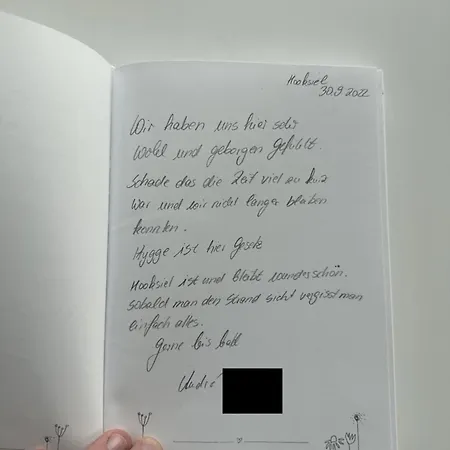 Hooksiel
30.9.2022
Wir haben uns hier sehr
wohl und geborgen gefühlt.
Schade das die Zeit viel zu kurz
war und wir nicht länger bleiben
konnten.
Hygge ist hier Gesetz
Hooksiel ist und bleibt wunderschön.
sobald man den Strand sieht vergisst man
einfach alles.
Gerne bis bald